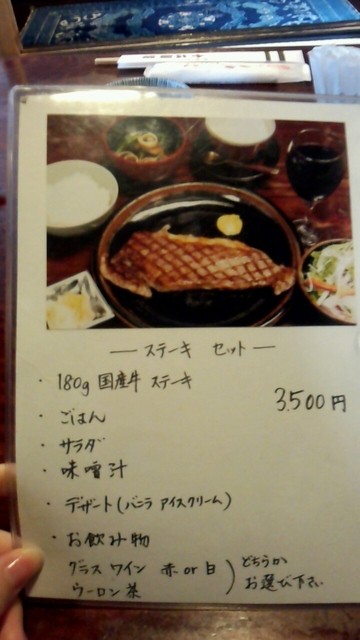 — ステーキ セット —
・ 180g 国産牛 ステーキ
3,500円
・ ごはん
・ サラダ
・ 味噌汁
・ デザート(バニラ アイスクリーム)
・ お飲み物
グラス ワイン 赤 or 白
ウーロン茶
) どちらか
お選び下さい